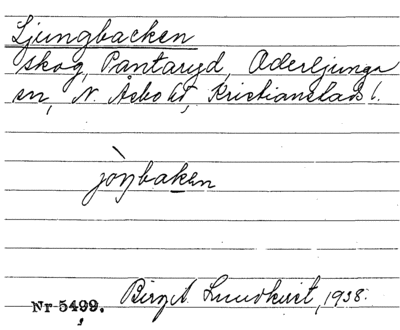 Ljungbacken
skog, Pantaryd, Oderljunga
sn, N. Åsbo hd, Kristianstads l.
jòŋbaken
Nr 5499. Birgit Lundkvist, 1938.